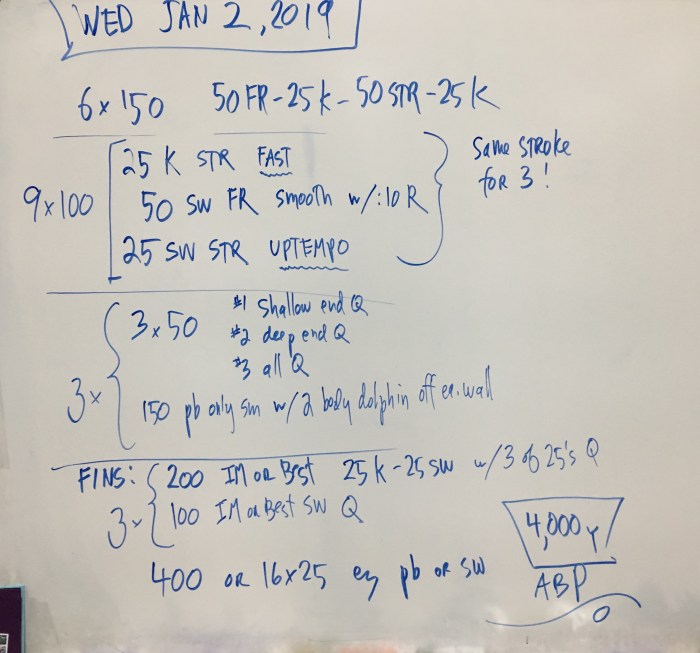 WED JAN 2, 2019
6 x 150 50 FR - 25 K - 50 STR - 25 K
9 x 100
25 K STR FAST
50 SW FR smooth w/ :10 R
25 SW STR UPTEMPO
Same STROKE
for 3!
3 x
3 x 50
#1 Shallow end Q
#2 deep end Q
#3 all Q
150 pb only sm w/ 2 body dolphin off ea. wall
FINS:
3 x
200 IM OR Best 25 K - 25 SW w/ 3 of 25's Q
100 IM OR Best SW Q
400 OR 16 x 25 ez pb OR SW
4,000 y
ABP